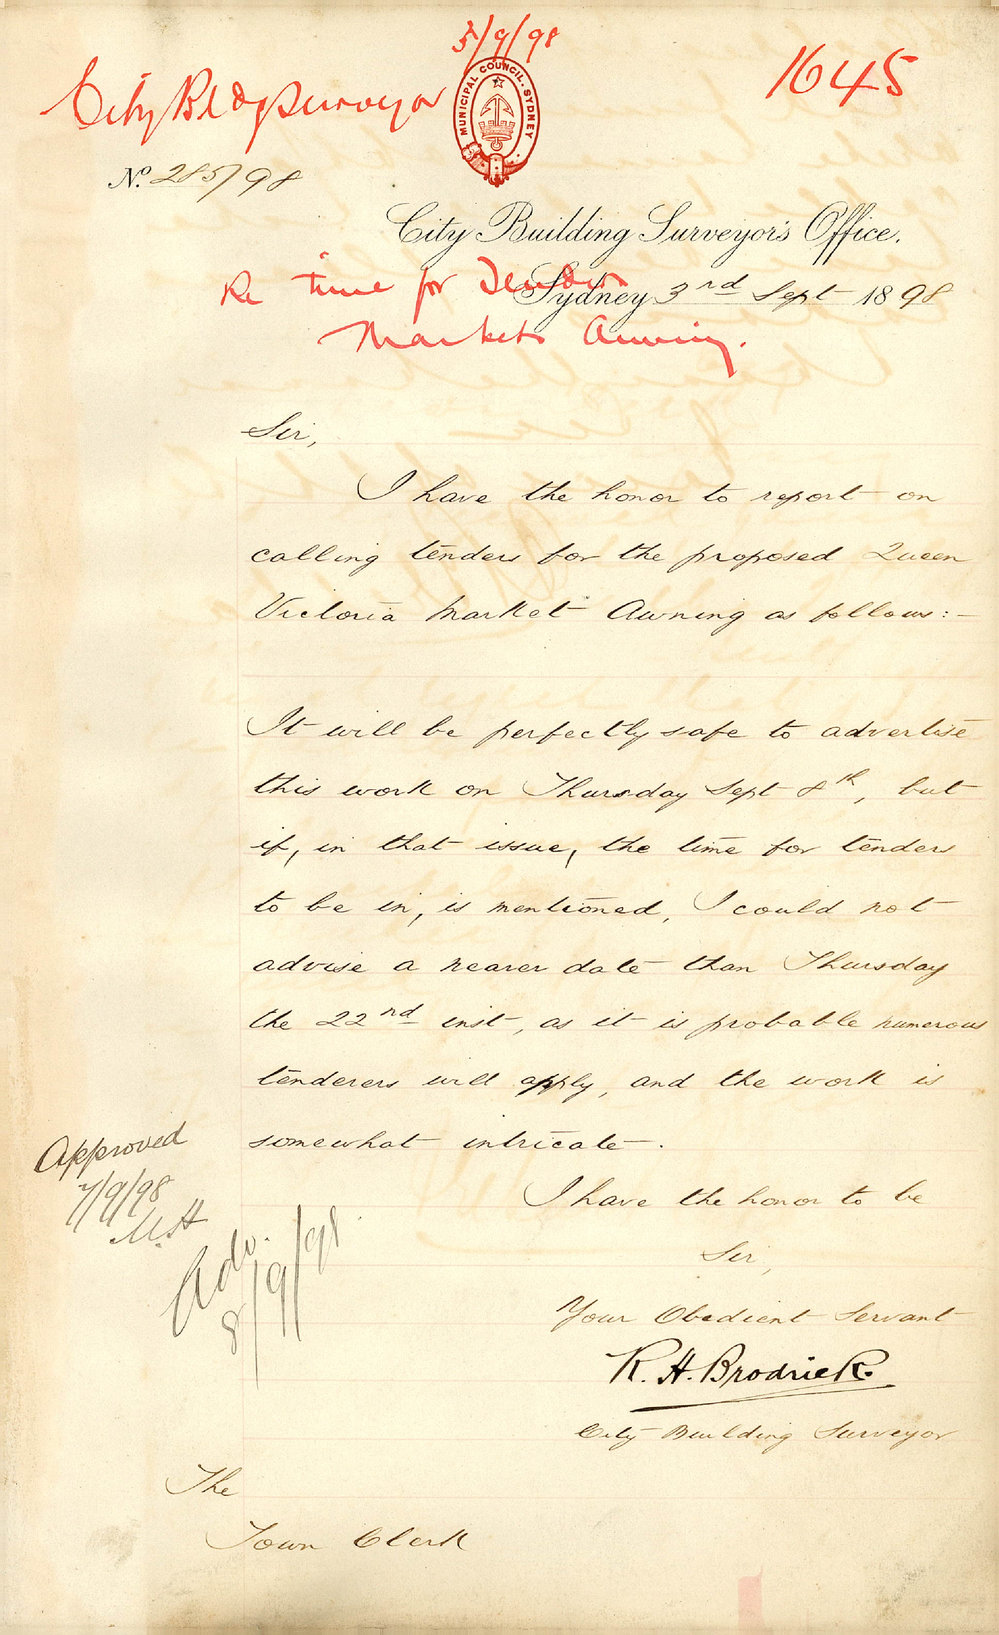 5/9/98
1645
City Bldg Surveyor
MUNICIPAL COUNCIL. SYDNEY
No. 285/98
City Building Surveyor's Office.
Re time for Tenders
Sydney 3rd Sept 1898
Markets Awning.
Sir,
I have the honor to report on
calling tenders for the proposed Queen
Victoria Market Awning as follows:-
It will be perfectly safe to advertise
this work on Thursday Sept 8th, but
if, in that issue, the time for tenders
to be in, is mentioned, I could not
advise a nearer date than Thursday
the 22nd inst, as it is probable numerous
tenderers will apply, and the work is
somewhat intricate.
Approved
7/9/98
Adv.
8/9/98
I have the honor to be
Sir,
Your Obedient Servant
R. H. Brodrick.
City Building Surveyor
The
Town Clerk